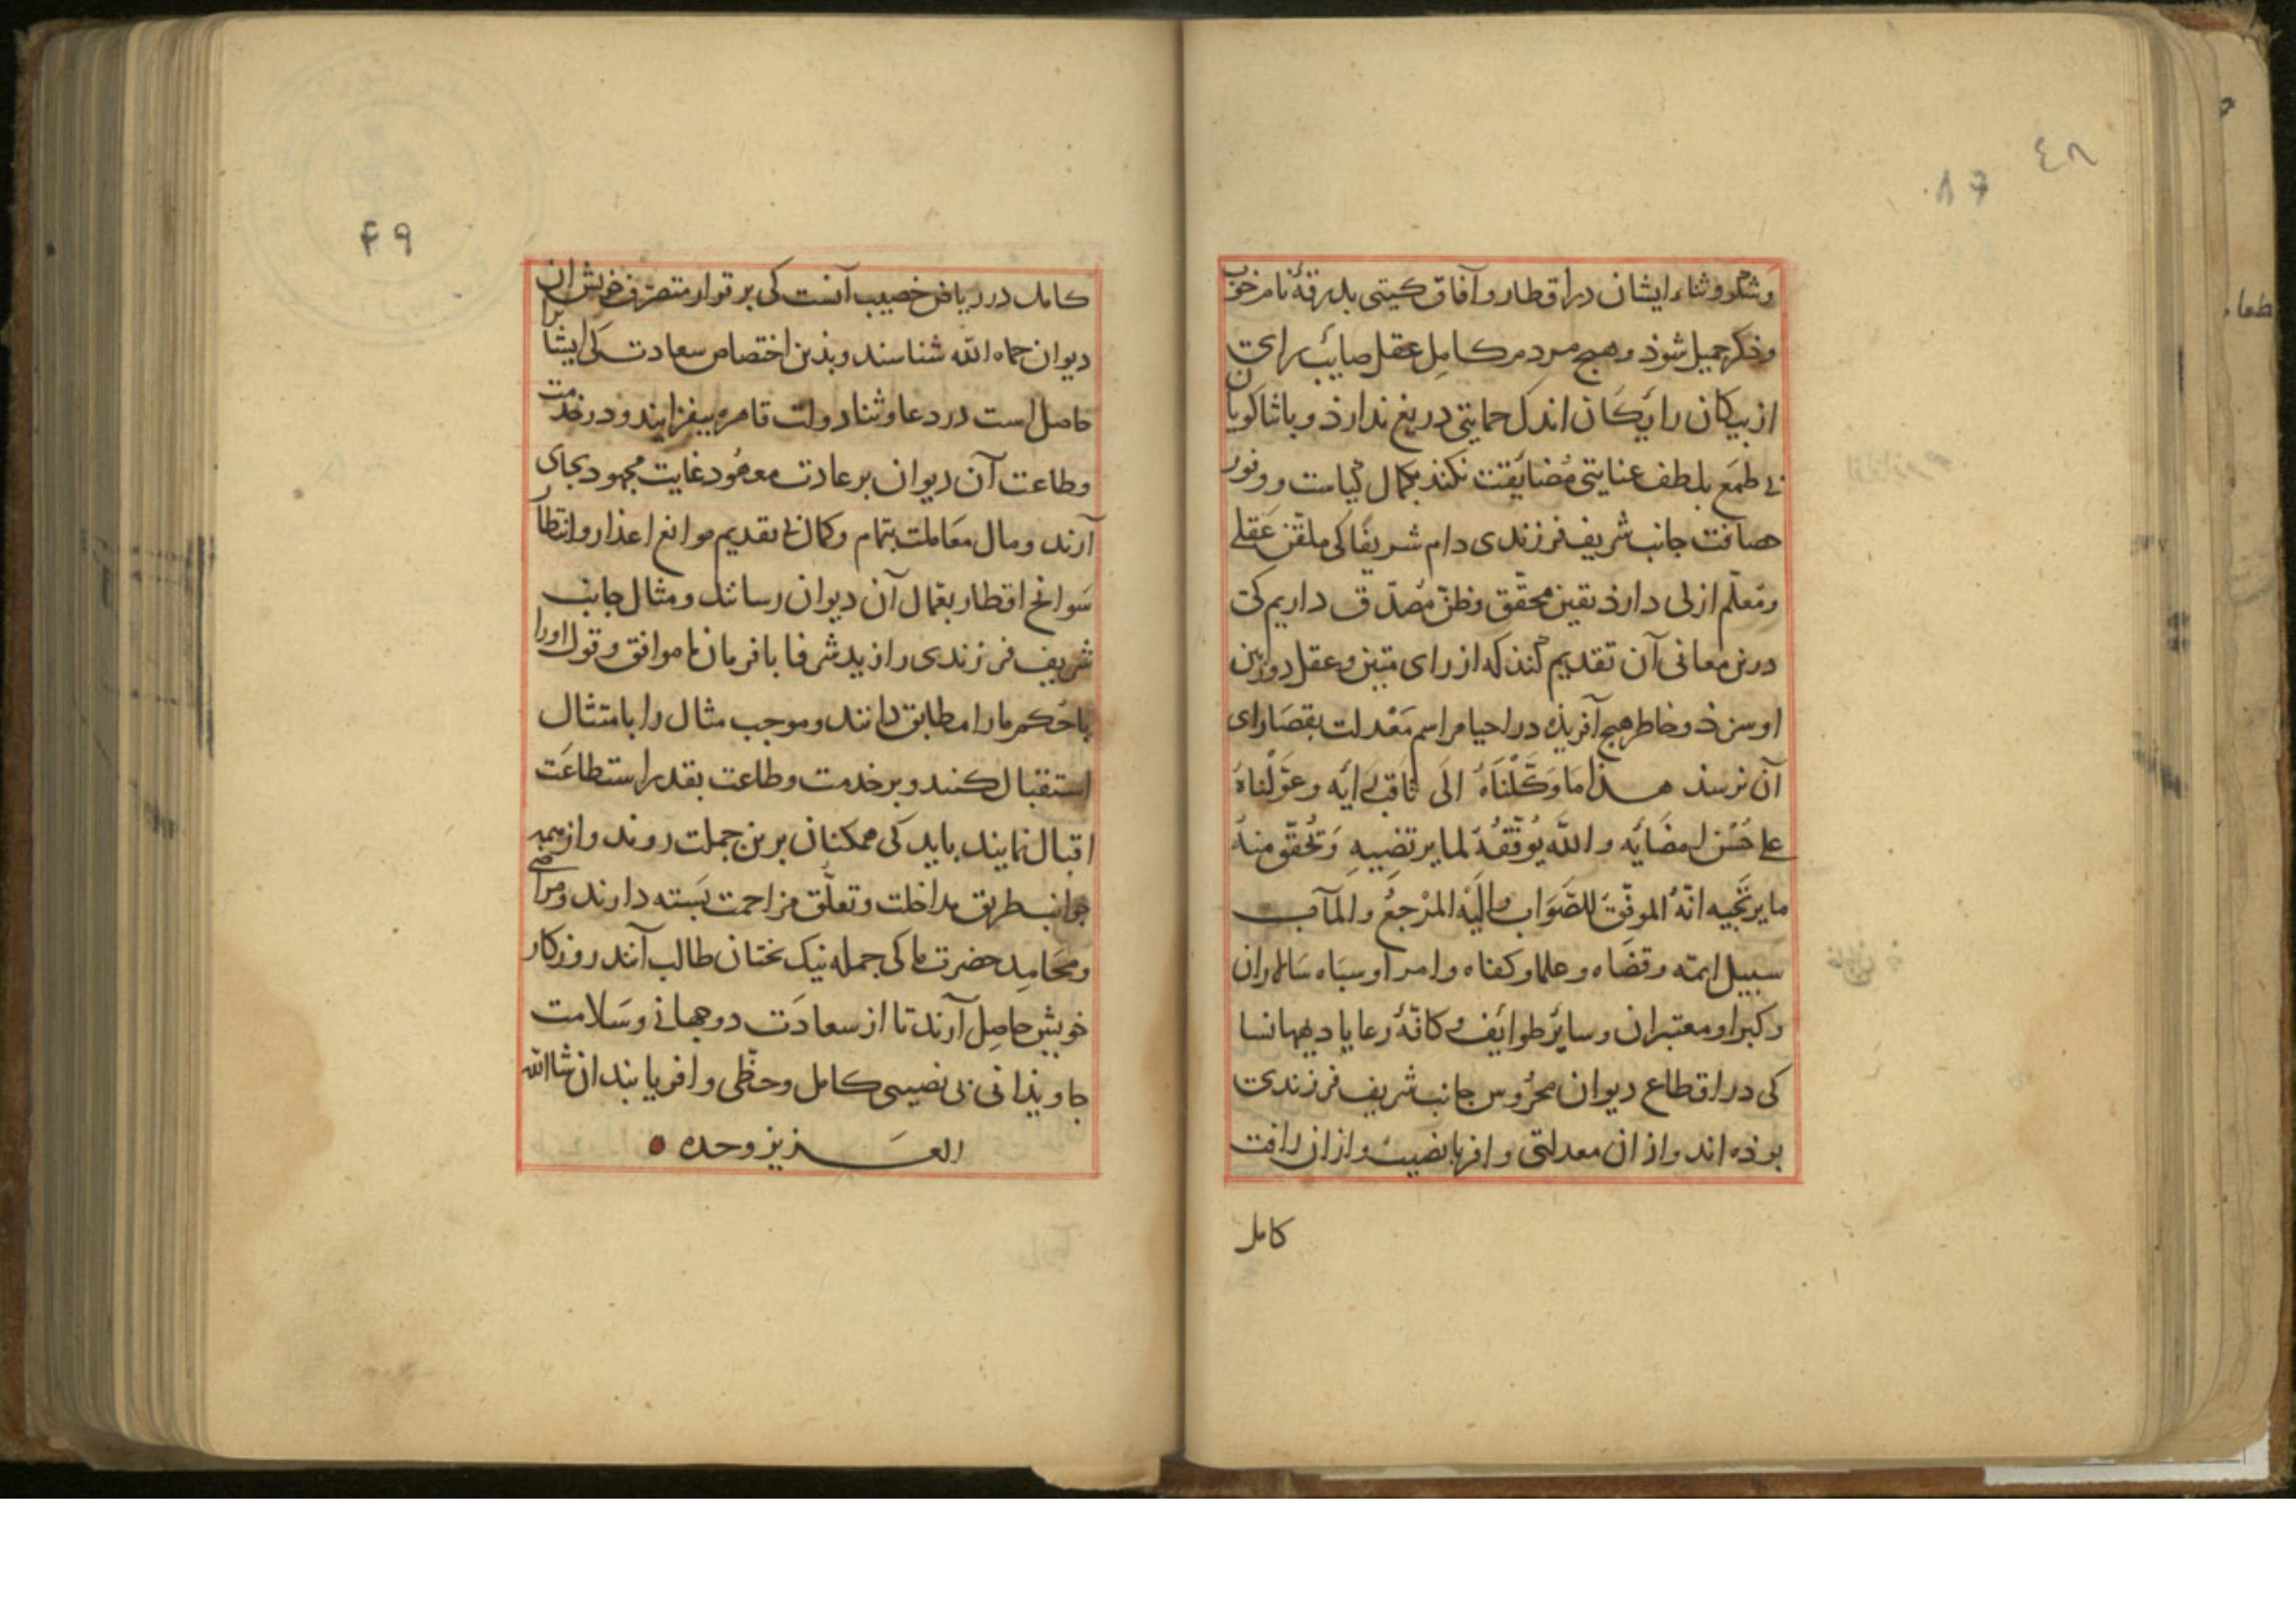 ٤٨
٨٦
وشکر و ثناء ایشان در اقطار و آفاق کیتی بدرقۀ نام خوب
وذکر جمیل شوذ وهیج مردم کامل عقل صائب رای
از بیکان رایکان اندک حمایتی دریغ ندارذ و با ثناکویان
بی طمع بلطف عنایتی مُضایَقت نکند بکمال کیاست ووفور
حصافت جانب شریف فرزندی دام شریفًا کی ملقّن عقلی
ومُعلّم ازلی دارذ یقین محقّق وظنّ مُصدّق داریم کی
درین معانی آن تقدیم کنذ که از رای متین و عقل دوربین
او سزذ و خاطر هیج آفریذه در احیا مراسم مَعْدلت بقصارای
آن نرسذ هذا مَا وَکَّلْنَاهُ الَی ثاقب رَایَه وعَوَّلْناهُ
علی حُسْن امضَایَه والله یُوَفّقُهُ لما یرتضیهِ وَتُحقّق منهُ
ما یرتجیه انّهُ الموفّقُ للصّوَاب والَیْهِ المرْجعُ والمآب
سبیل ایمّه وقضَاه وعلما وکفاه وامرا وسبَاه سَالاران
وکبرا ومعتبران وسایَر طوایَف و کافّۀ رعایا دیهاء نسا
کی در اقطاع دیوان محرُوس جانب شریف فرزندی
بوذه اند و از ان معدلتی وافر با نصیب و از ان رافت
کامل
۴۹
کامل در ریاض خصیب آنست کی بر قرار متصرّف خویش ان
دیوان حماه الله شناسند وبذین اختصاص سعادت کی ایشانرا
حاصل است در دعا و ثنا دولت قاهره بیفزایند ودر خدمت
وطاعت آن دیوان بر عادت معهُود غایت مجهود بجای
آرند ومال معَاملت بتمام وکمال بی تقدیم موانع اعذار وانتظار
سَوانح اقطار بعمال آن دیوان رسانند ومثال جانب
شریف فرزندی را زید شرفا با فرمان ما موافق وقول اورا
باحُکم ما را مطابق دانند وموجب مثال را بامتثال
استقبال کنند وبر خدمت وطاعت بقدر استطاعَت
اقبال نمایند باید کی همکنان برین جملت روند واز همه
جوانب طریق مداخلت وتعلّق مزاحمت بَسته دارند ومراضی
ومحَامِد حضرت ما کی جمله نیک بختان طالب آنند روزکار
خویش حاصِل آرند تا از سعادَت دوجهانی وسَلامت
جاویذانی بی نصیبی کامل وحظّی وافر یابند ان شا الله
العَزیز وحده